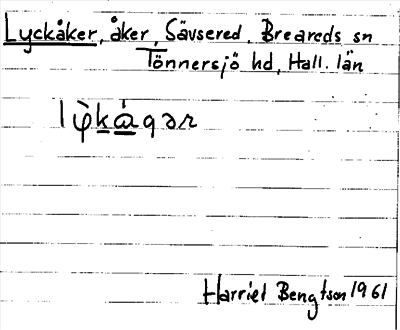 Lyckåker, åker, Sävsered, Breareds sn
Tönnersjö hd, Hall. län
lỳkåqər
Harriet Bengtson 1961